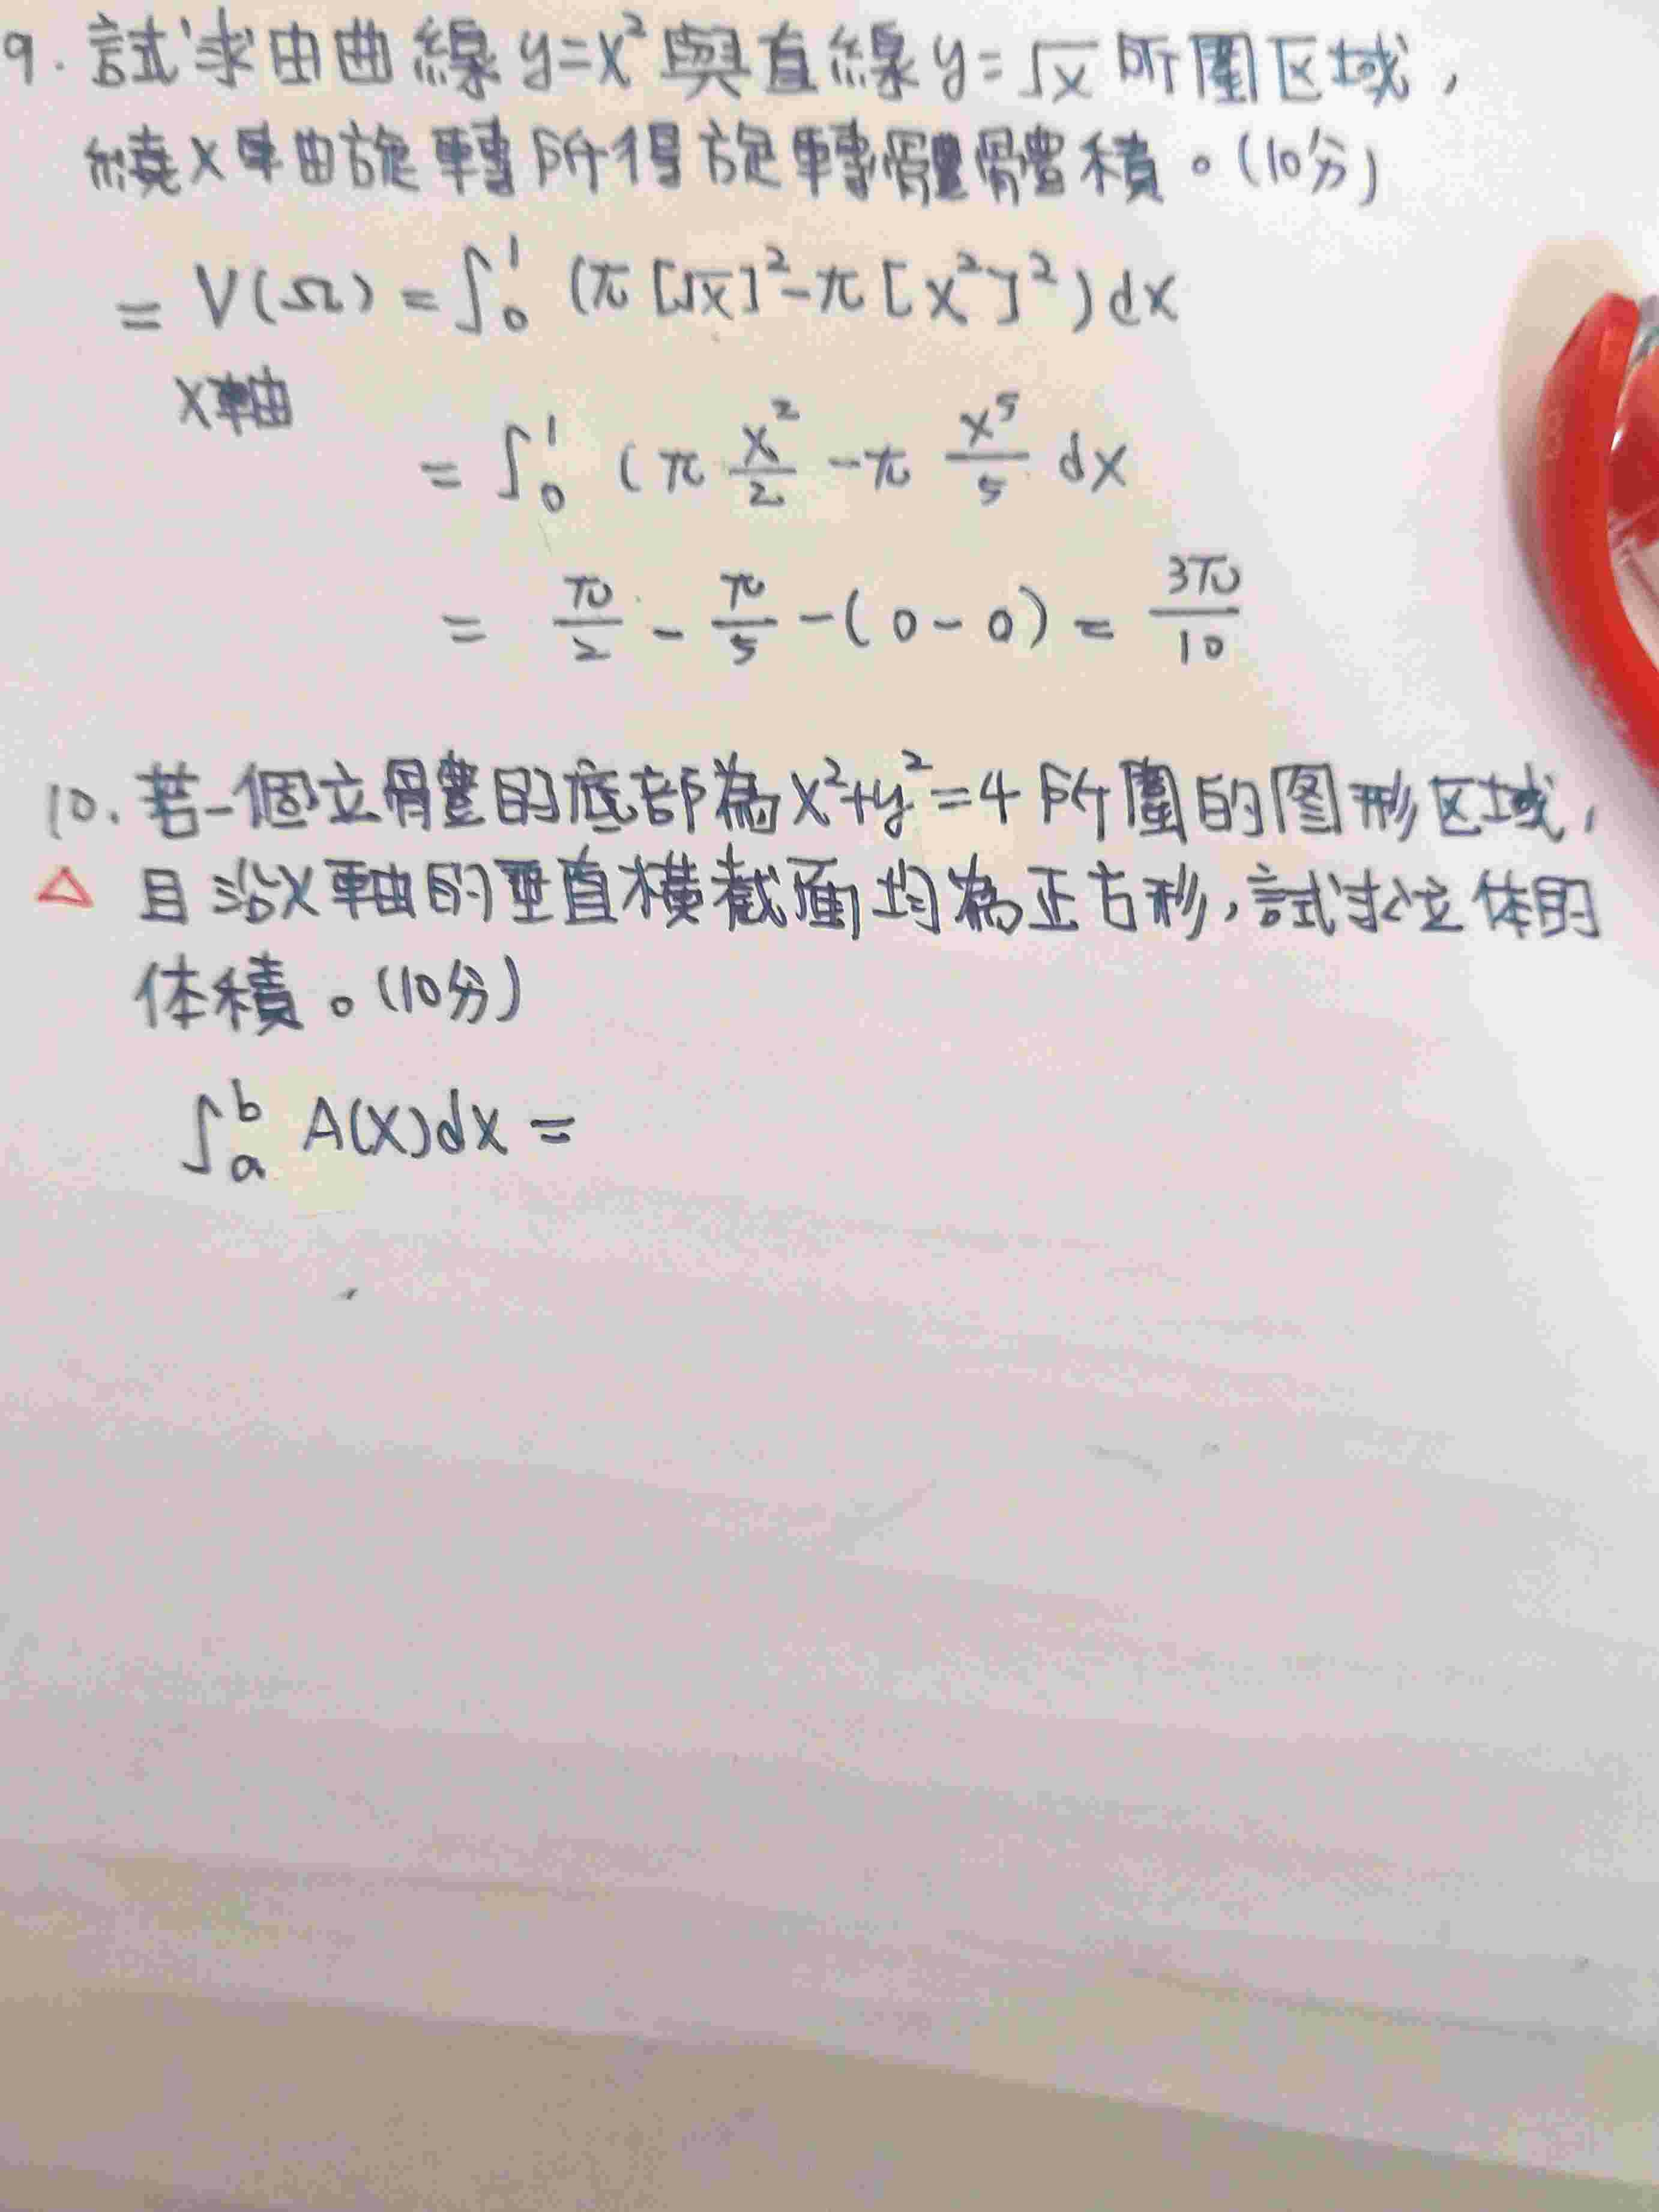 9. 試求由曲線 y=x² 與直線 y=√x 所圍区域，
繞x軸旋轉所得旋轉體體積。(10分)
= V(Ω) = ∫₀¹ (π[√x]²-π[x²]²)dx
x軸
= ∫₀¹ (π x²/2 - π x⁵/5 dx
= π/2 - π/5 - (0-0) = 3π/10
10. 若一個立體的底部為x²+y²=4所圍的图形区域，
△ 且沿x軸的垂直橫截面均為正方形，試求立体的
体積。(10分)
∫ₐᵇ A(x)dx =